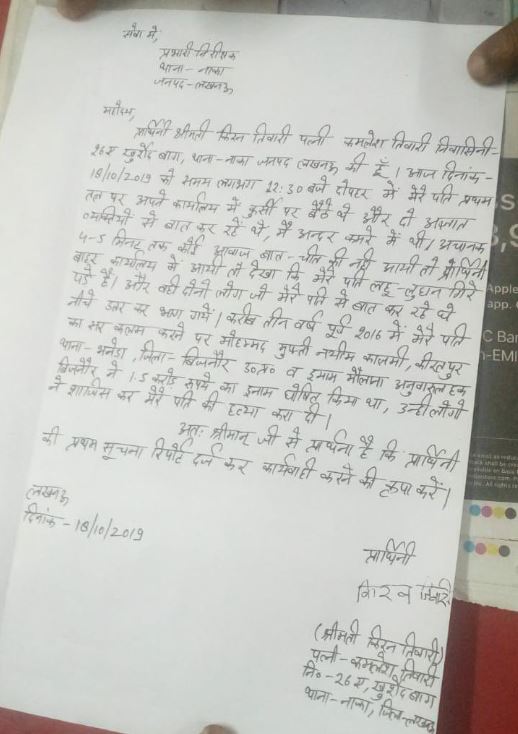 सेवा में,
प्रभारी निरीक्षक
थाना - नाका
जनपद - लखनऊ
महोदय,
प्रार्थिनी श्रीमती किरन तिवारी पत्नी कमलेश तिवारी निवासिनी-
26ए खुर्शेद बाग, थाना-नाका जनपद लखनऊ की हूँ। आज दिनांक-
18/10/2019 को समय लगभग 12:30 बजे दोपहर में मेरे पति प्रथम
तल पर अपने कार्यालय में कुर्सी पर बैठे थे और दो अज्ञात
व्यक्तियों से बात कर रहे थे, मैं अन्दर कमरे में थी। अचानक
4-5 मिनट तक कोई आवाज बात-चीत की नहीं आयी तो प्रार्थिनी
बाहर कार्यालय में आयी तो देखा कि मेरे पति लहू-लुहान गिरे
पड़े हैं। और वही दोनों लोग जो मेरे पति से बात कर रहे थे
नीचे उतर कर भाग गये। करीब तीन वर्ष पूर्व 2016 में मेरे पति
का सर कलम करने पर मोहम्मद मुफ्ती नईम काजमी, कीरतपुर
थाना- जिला- बिजनौर उ०प्र० व इमाम मौलाना अनवारूल हक
बिजनौर ने 1.5 करोड़ रूपये का इनाम घोषित किया था, उन्हीं लोगो
ने साजिस कर मेरे पति की हत्या करा दी।
अतः श्रीमान् जी से प्रार्थना है कि प्रार्थिनी
की प्रथम सूचना रिपोर्ट दर्ज कर कार्यवाही करने की कृपा करें।
लखनऊ
दिनांक - 18/10/2019
प्रार्थिनी
किरन तिवारी
(श्रीमती किरन तिवारी)
पत्नी- कमलेश तिवारी
नि०-26ए, खुर्शेद बाग
थाना-नाका, जिला-लखनऊ
Apple
app.
C Ban
-EMI